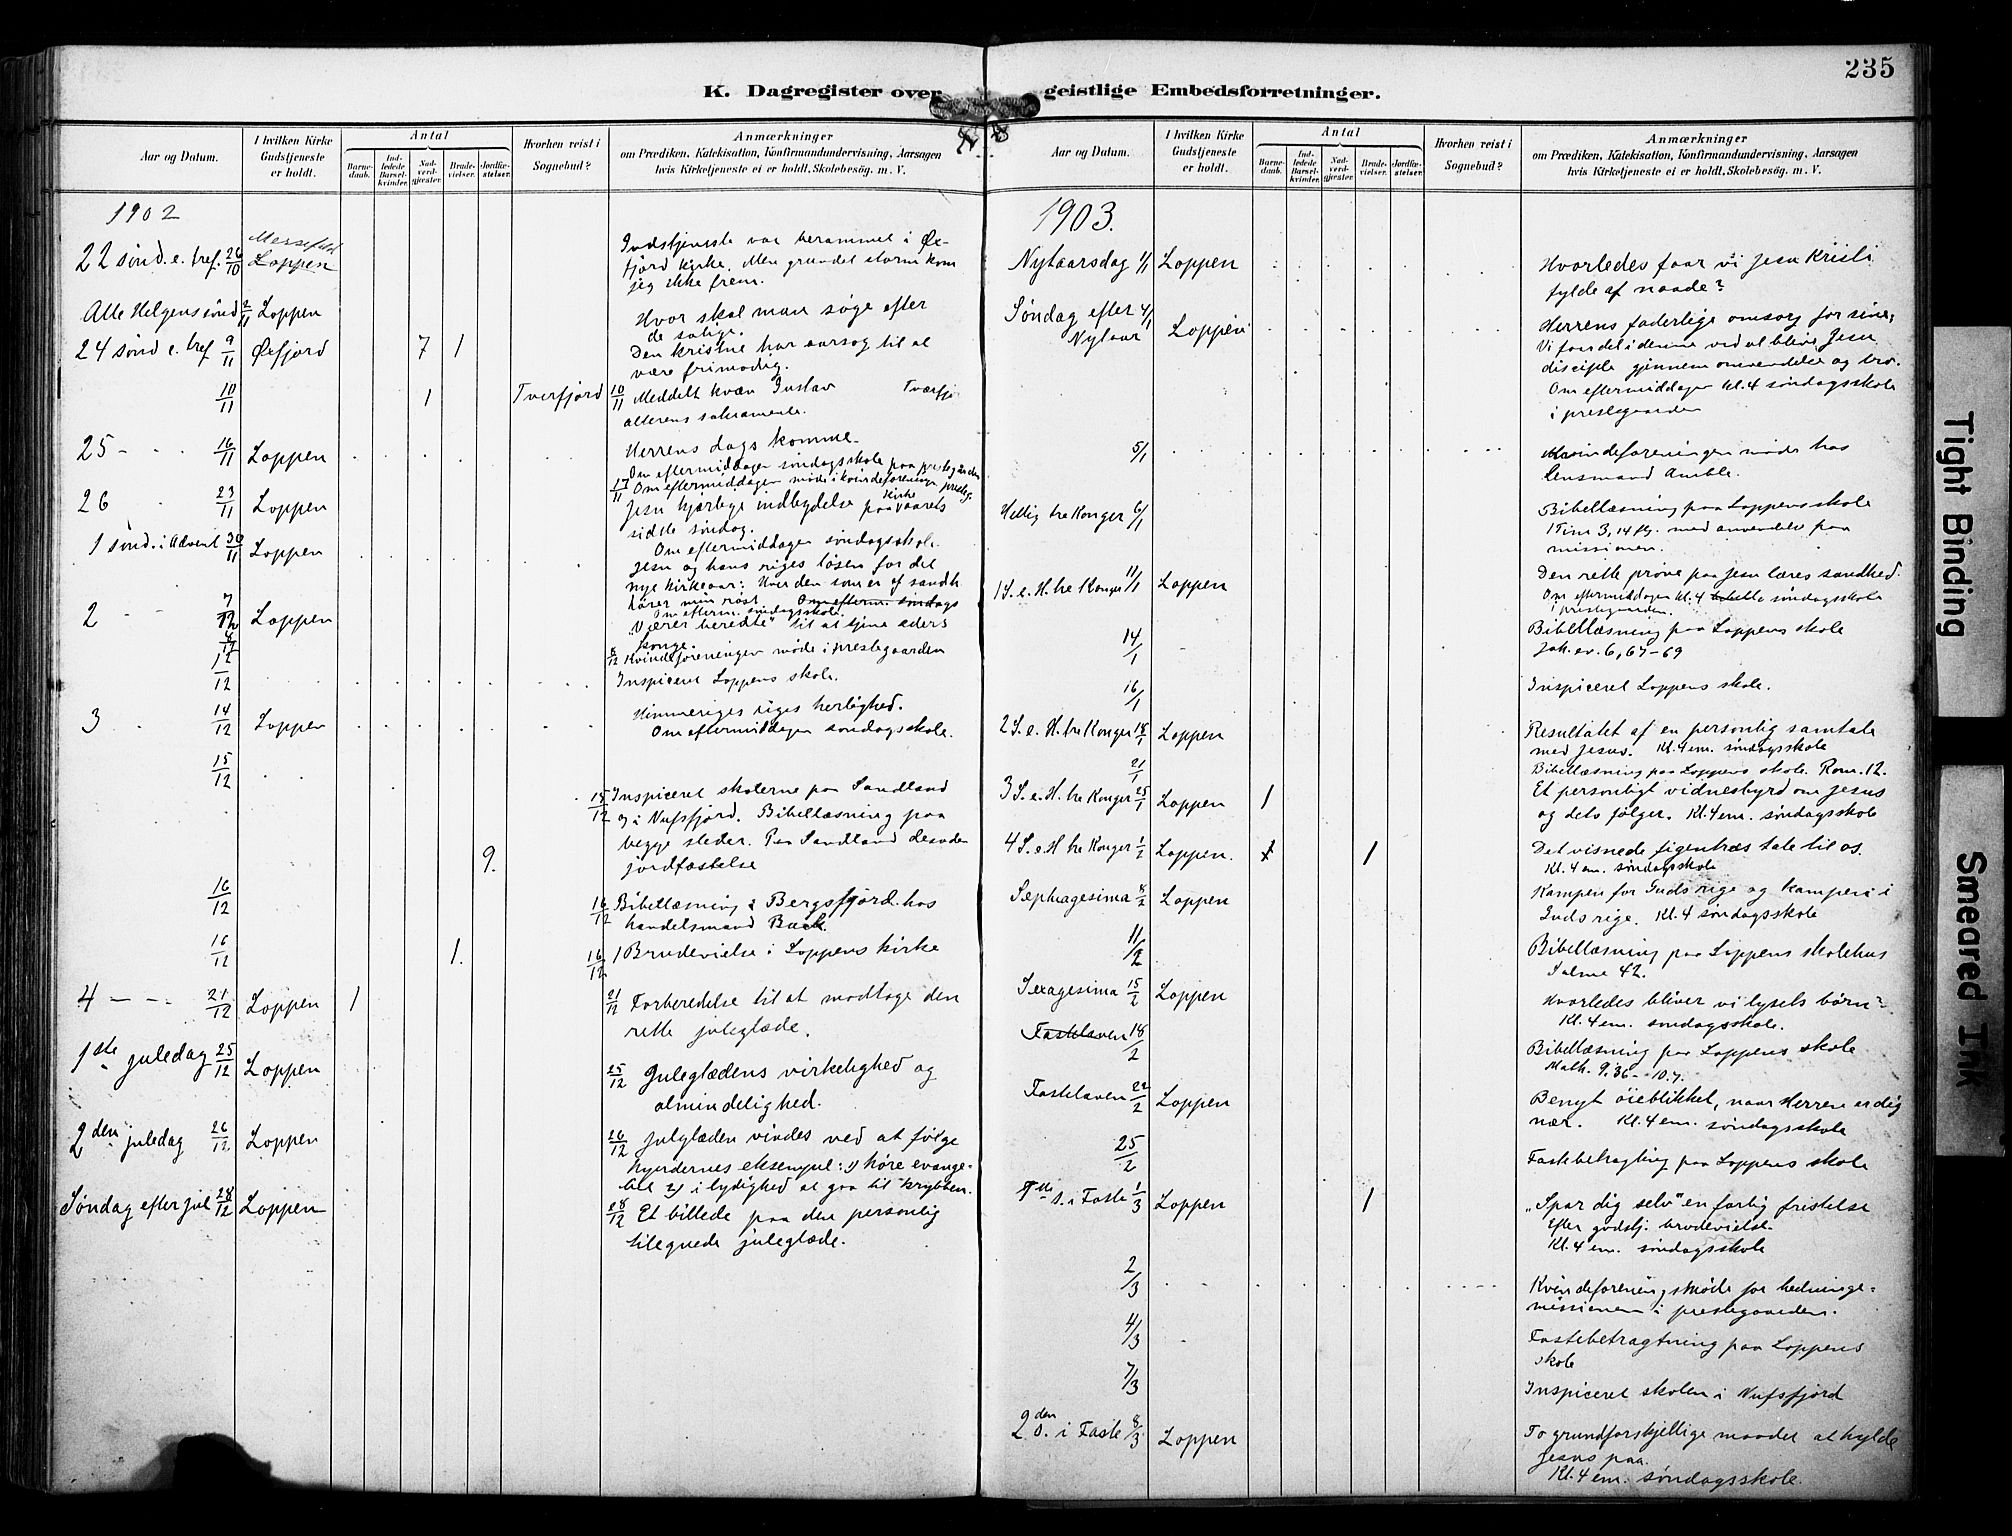 235
K. Dagregister over geistlige Embedsforretninger.
Aar og Datum.
I hvilken Kirke Gudstjeneste er holdt.
Antal
Barnedaab.
Indledede Barselkvinder.
Nadverdgjæster.
Brudevielser.
Jordfæstelser.
Hvorhen reist i Sognebud?
Anmærkninger
om Prædiken, Katekisation, Konfirmandundervisning, Aarsagen
hvis Kirketjeneste ei er holdt, Skolebesøg. m. V.
1902
22 sønd. e. tref. 26/10 Messefald Loppen
Gudstjeneste var berammet i Øxfjord kirke. Men grundet storm kom
jeg ikke frem.
Alle Helgens sønd 2/11 Loppen
Hvor skal man søge efter
de salige.
24 sønd e. tref 9/11 Øxfjord 7 1
Den kristne har aarsag til at
være frimodig.
10/11 1 Tverfjord 10/11 Meddelt kvæn Gustav Tværfj
alterens sakramente.
25 - 16/11 Loppen
Herrens dags komme.
Om eftermiddagen søndagsskole paa prestegaarden
17/11 Om eftermiddagen møde i kvindeforeningen presteg.
26 23/11 Loppen
Jesu hjærlige indbydelse paa kirkeaarets
sidste søndag.
Om eftermiddagen søndagsskole.
1 sønd. i Advent 30/11 Loppen
Jesu og hans riges løsen for det
nye kirkeaar: Hver den som er af sandh.
hører min røst. Om efterm. søndags
Om efterm. søndagsskole.
2 - - 7/12 Loppen
"Værer beredte" til at tjene eders
konge.
8/12 8/12 Kvindeforeningen møde i prestegaarden
12/12 Inspiceret Loppens skole.
3 14/12 Loppen
Himmeriges riges herlighed.
Om eftermiddagen søndagsskole.
15/12
15/12 Inspiceret skolerne paa Sandland
og i Nufsfjord. Bibellæsning paa
begge steder. Paa Sandland desuden
9. jordfæstelse
16/12 16/12 Bibellæsning i Bergsfjord hos
handelsmand Buck.
16/12 1. 16/12 1 Brudevielse i Loppens kirke
4 - - - 21/12 Loppen 1 21/12 Forberedelse til at modtage den
rette juleglæde.
1ste juledag 25/12 Loppen 25/12 Juleglædens virkelighed og
almindelighed.
2den juledag 26/12 Loppen 26/12 Julglæden vindes ved at følge
hyrdernes eksempel: 1) høre evangeliet 2) i lydighed at gaa til krybben.
Søndag efter jul 28/12 Loppen 28/12 Et billede paa den personlig
tilegnede juleglæde.
Aar og Datum.
I hvilken Kirke Gudstjeneste er holdt.
Antal
Barnedaab.
Indledede Barselkvinder.
Nadverdgjæster.
Brudevielser.
Jordfæstelser.
Hvorhen reist i Sognebud?
Anmærkninger
om Prædiken, Katekisation, Konfirmandundervisning, Aarsagen
hvis Kirketjeneste ei er holdt, Skolebesøg. m. V.
1903.
Nytaarsdag 1/1 Loppen
Hvorledes faar vi Jesu Kristi
fylde af naade?
Søndag efter Nytaar 4/1 Loppen
Herrens faderlige omsorg for sine;
Vi faar del i denne ved at blive Jesu
disciple gjennem omvendelse og tro.
Om eftermiddagen kl. 4 søndagsskole
i prestegaarden
5/1 Kvindeforeningen møde hos
lensmand Amble.
Hellig tre Konger 6/1
Bibellæsning paa Loppens skole
1 Tim 3, 14 flg. med anvendelse paa
missionen.
1 S. e. H. tre Konger 11/1 Loppen
Den rette prøve paa Jesu læres sandhed.
Om eftermiddagen kl. 4 søndagsskole
i prestegaarden.
14/1 Bibellæsning paa Loppens skole
Joh. ev. 6, 67-69
16/1 Inspiceret Loppens skole.
2 S. e. H. tre Konger 18/1 Loppen
Resultatet af en personlig samtale
med Jesus. Kl. 4 em. søndagsskole
21/1 Bibellæsning paa Loppens skole. Rom. 12.
3 S. e. H. tre Konger 25/1 Loppen 1
Et personligt vidnesbyrd om Jesus
og dets følger. Kl. 4 em. søndagsskole
4 S. e. H tre Konger 1/2 Loppen. 1 1
Det visnede figentræs tale til os.
Kl. 4 em. søndagsskole
Septuagesima 8/2 Loppen
Kampen for Guds rige og kampen i
Guds rige. Kl. 4 søndagsskole
11/2 Bibellæsning paa Loppens skolehus
Salme 42.
Sexagesima 15/2 Loppen
Hvorledes bliver vi lysets børn?
Kl. 4 em. søndagsskole.
Fastelaven 18/2
Bibellæsning paa Loppens skole
Math. 9, 36 - 10, 7.
Fastelaven 22/2 Loppen
Benyt øieblikket, naar Herren er dig
nær. Kl. 4 em. søndagsskole
25/2 Fastebetragtning paa Loppens skole
1ste S. i Faste 1/3 Loppen 1
"Spar dig selv" en farlig fristelse
Efter gudstj. brudevielse.
Kl. 4 em. søndagsskole
2/3 Kvindeforeningsmøde for hedningemissionen i prestegaarden.
4/3 Fastebetragtning paa Loppens
skole
7/3 Inspiceret skolen i Nufsfjord
2den S. i Faste 8/3 Loppen
To grundforskjellige maader at hylde
Jesus paa.
Kl. 4 em. søndagsskole.
Tight Binding
Smeared Ink